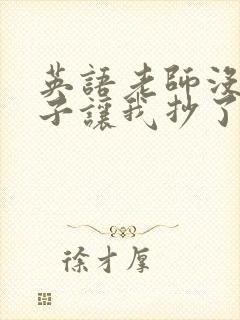 英語老師沒
子讓我抄了
徐才厚